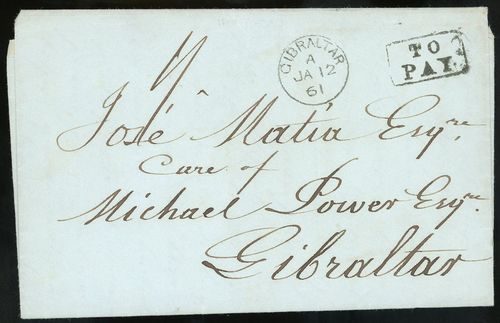 GIBRALTAR
A
JA 12
61
TO
PAY.
José Matia Esqre
Care of
Michael Power Esqre
Gibraltar